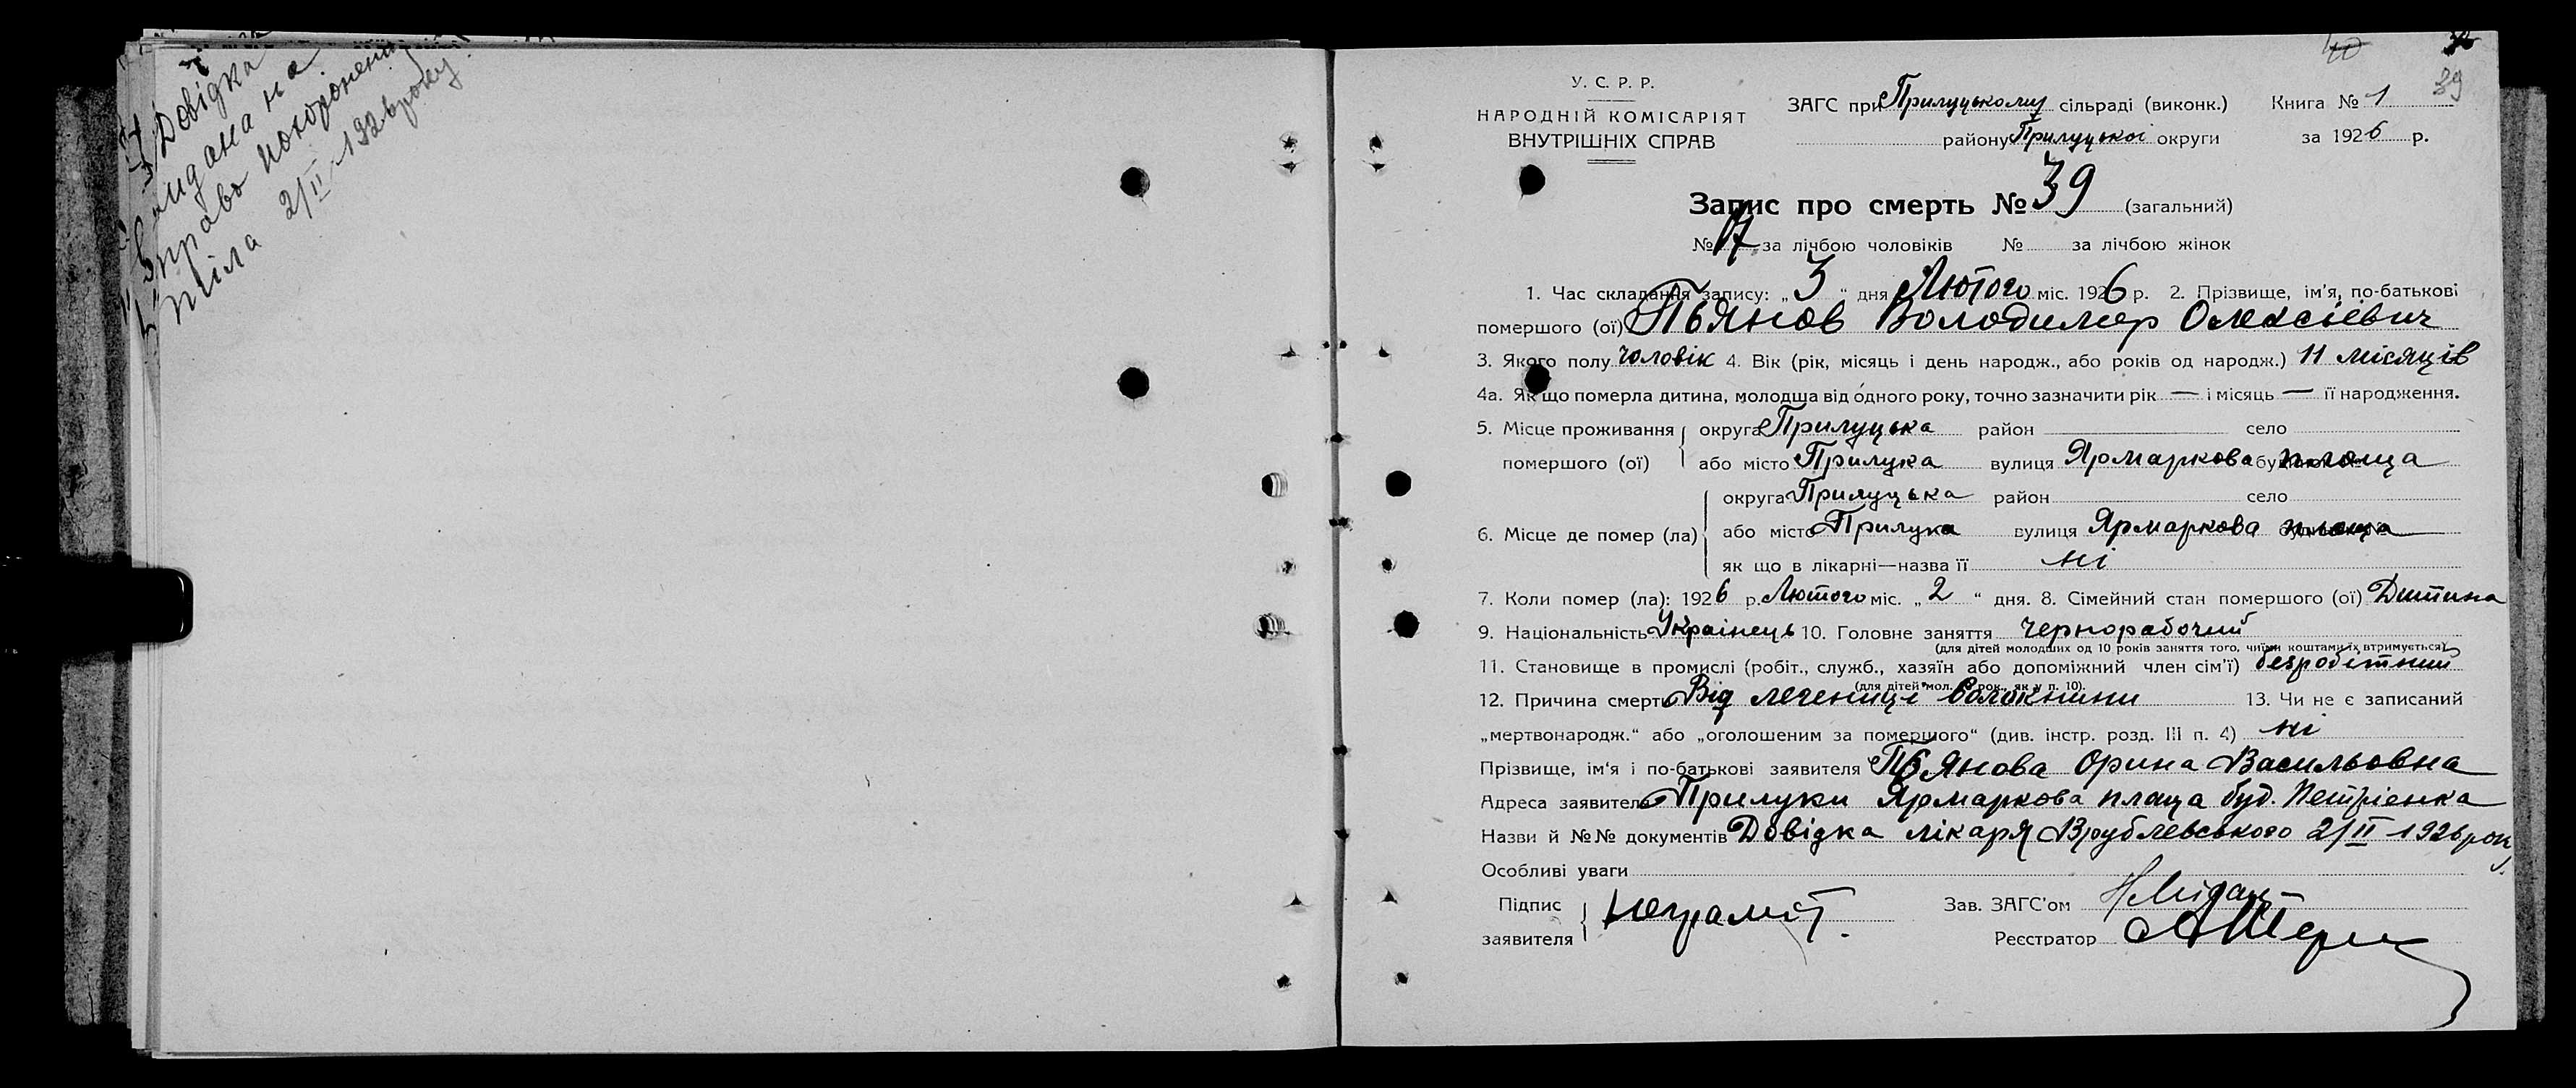 Довідка
видана на
право похоронення
тіла 2/II 1926 року
39
У. С. Р. Р.
НАРОДНІЙ КОМІСАРІЯТ
ВНУТРІШНІХ СПРАВ
ЗАГС при Прилуцькому сільраді (виконк.) Книга № 1
району Прилуцької округи за 1926 р.
Запис про смерть № 39 (загальний)
№ 17 за лічбою чоловіків № за лічбою жінок
1. Час складання запису: „ 3 “ дня Лютого міс. 1926 р. 2. Прізвище, ім'я, по-батькові
помершого (ої) Пьянов Володимер Олексієвич
3. Якого полу чоловік 4. Вік (рік, місяць і день народж., або років од народж.) 11 місяців
4а. Як що померла дитина, молодша від одного року, точно зазначити рік — і місяць — її народження.
5. Місце проживання округа Прилуцька район село
помершого (ої) або місто Прилука вулиця Ярмаркова площа
округа Прилуцька район село
6. Місце де помер (ла) або місто Прилука вулиця Ярмаркова площа
як що в лікарні—назва її ні
7. Коли помер (ла): 1926 р. Лютого міс. „ 2 “ дня. 8. Сімейний стан помершого (ої) Дитина
9. Національність Украінець 10. Головне заняття чернорабочий
(для дітей молодших од 10 років заняття того, чиїми коштами їх втримується)
11. Становище в промислі (робіт., служб., хазяїн або допоміжний член сім'ї) безробітний
(для дітей мол. 10 рок., як у п. 10).
12. Причина смерти Від легениці волокнини 13. Чи не є записаний
„мертвонародж.“ або „оголошеним за помершого“ (див. інстр. розд. III п. 4) ні
Прізвище, ім'я і по-батькові заявителя Пьянова Орина Васильовна
Адреса заявителя Прилуки Ярмаркова плаца буд. Петрієнка
Назви й №№ документів Довідка лікаря Врублевського 2/II 1926 року
Особливі уваги
Підпис неграмот.
заявителя
Зав. ЗАГС'ом
Реєстратор